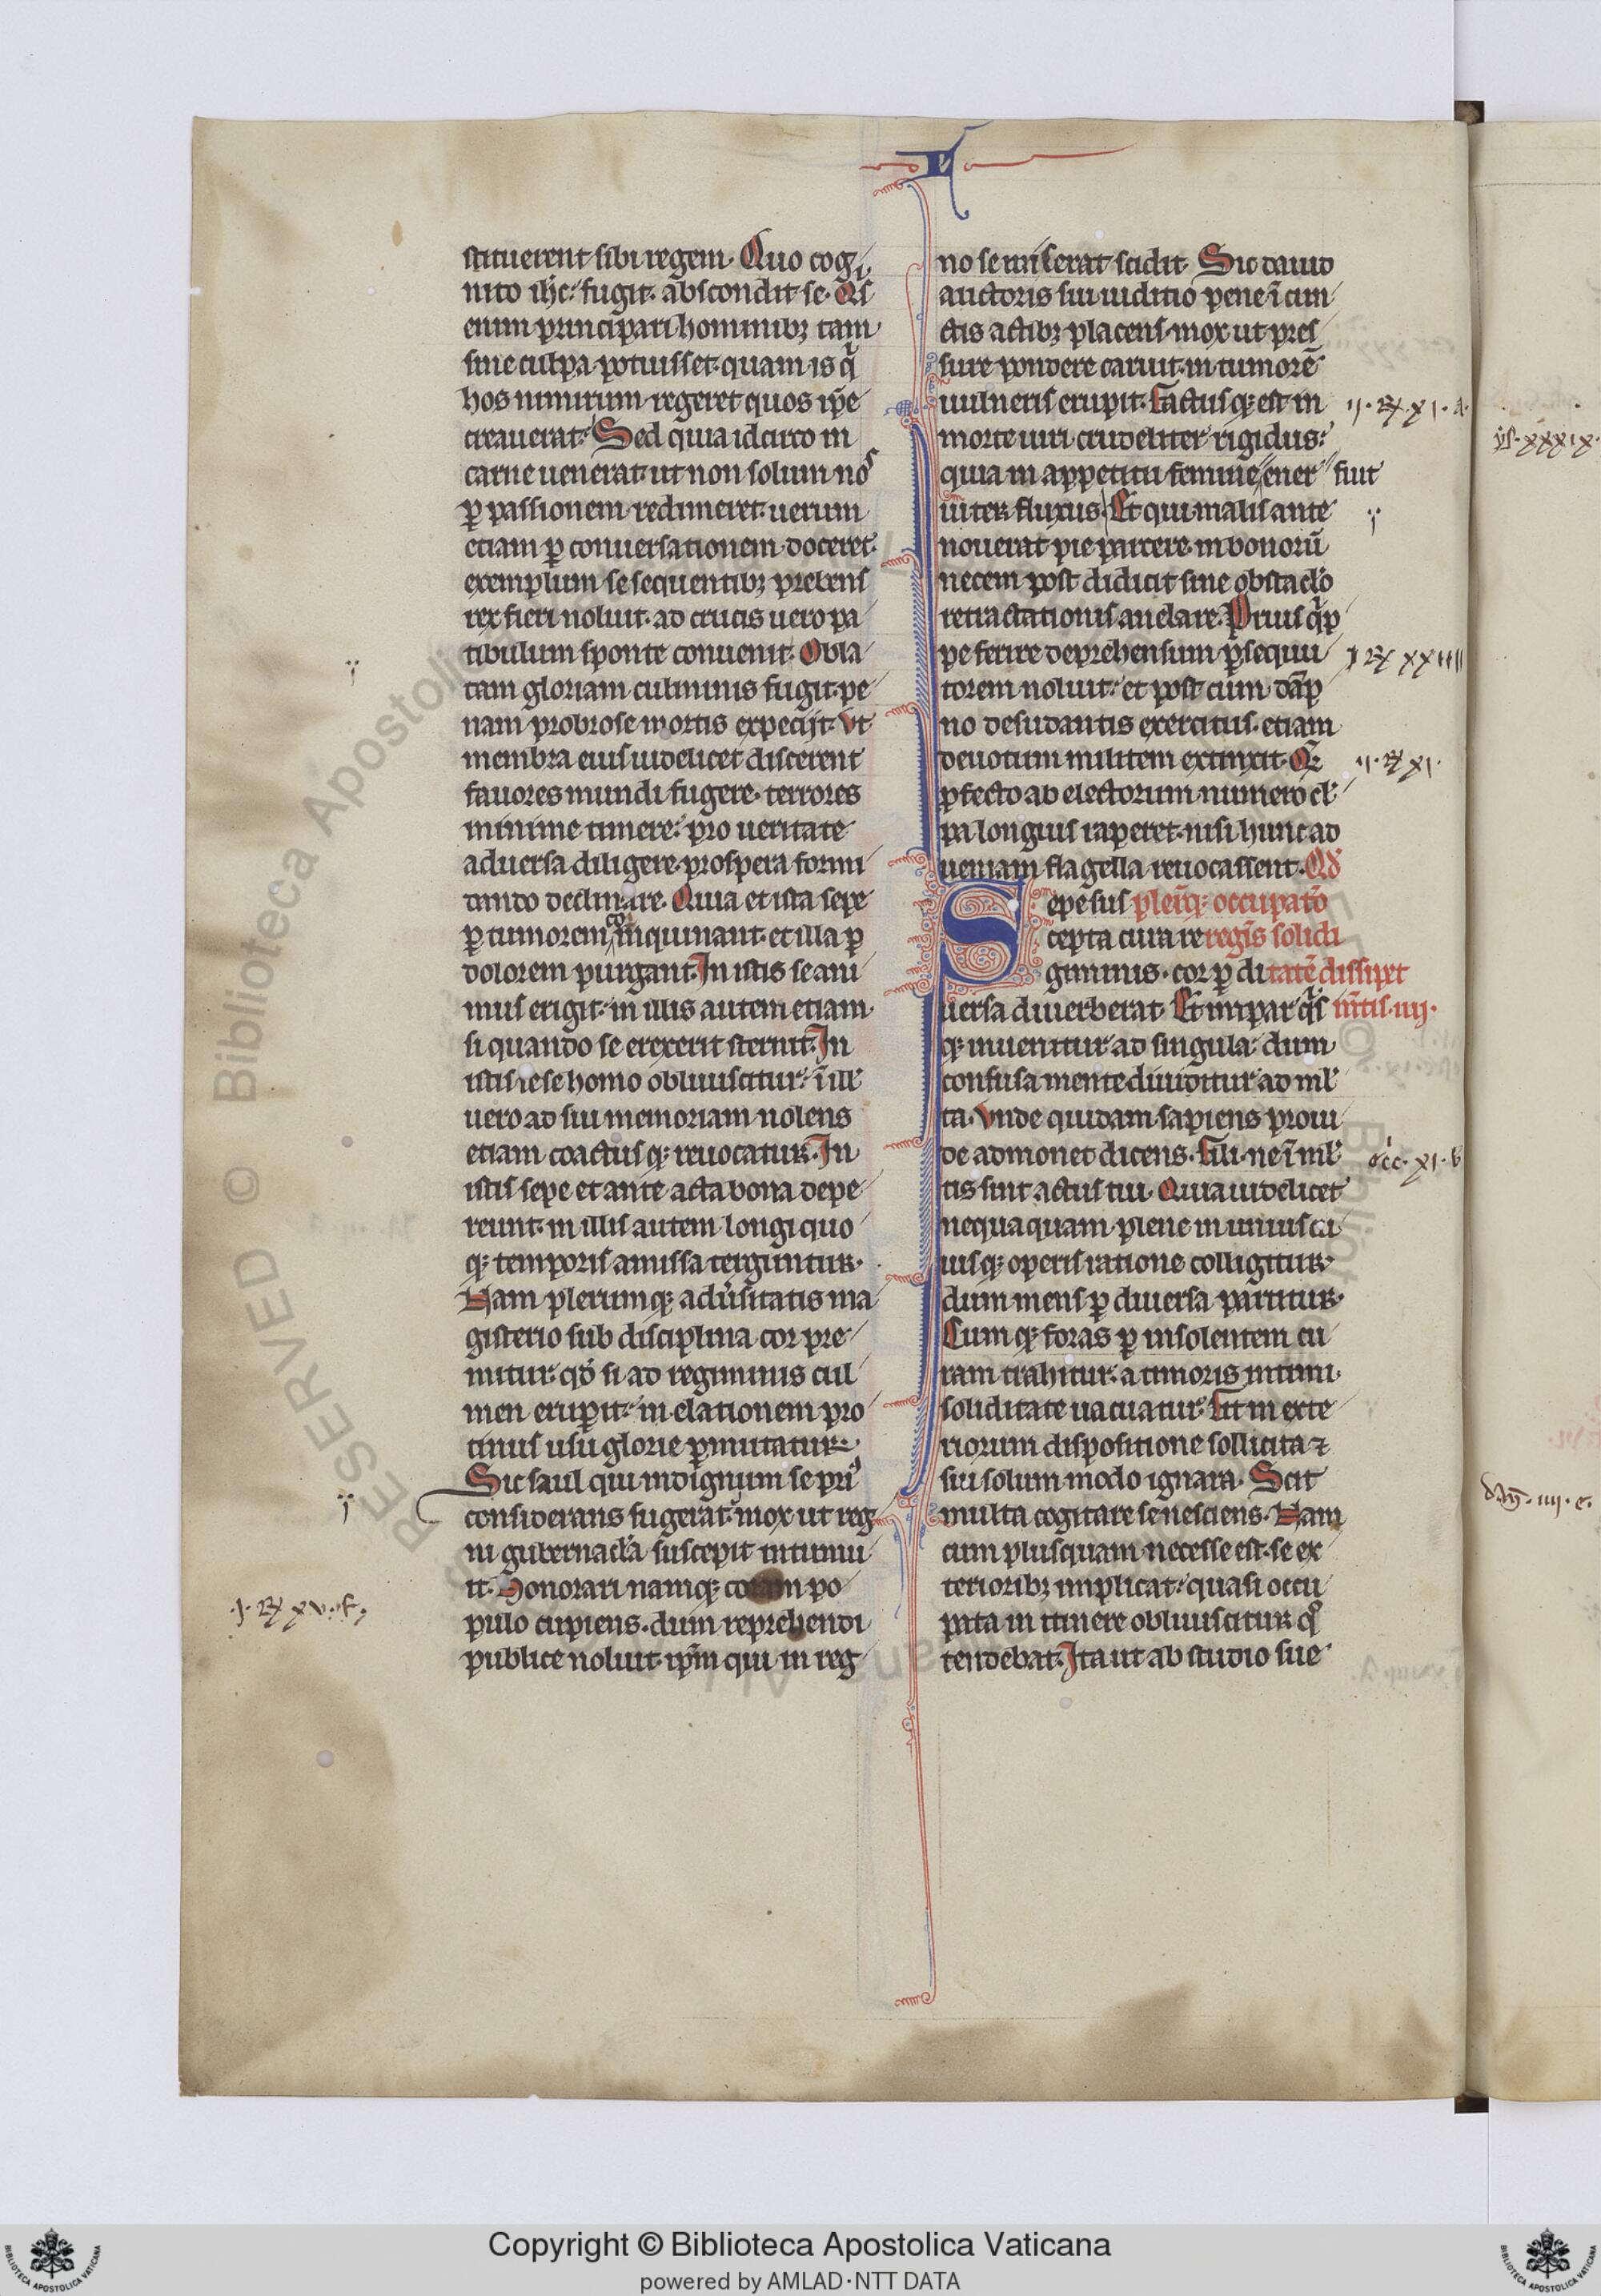 I
stituerent sibi regem. Quo cog
nito ih̅c fugit. abscondit se. Qͥs
enim principari hominibꝫ tam
sine culpa potuisset quam is q̇
hos nimirum regeret quos ip̅e
creauerat. Sed quia idcirco in
carne uenerat ut non solum nos
ꝑ passionem redimeret uerum
etiam ꝑ conuersationem doceret.
exemplum se sequentibꝫ prebens
rex fieri noluit. ad crucis uero pa
tibulum sponte conuenit. Obla
tam gloriam culminis fugit. pe
nam probrose mortis expeciit. Vt
membra eius uidelicet discerent
fauores mundi fugere. terrores
minime timere. pro ueritate
aduersa diligere. prospera formi
dando declinare. Quia et ista sepe
ꝑ tumorem cor inquinant. et illa ꝑ
dolorem purgant. In istis se ani
mus erigit. in illis autem etiam
si quando se erexerit sternit. In
istis sese homo obliuiscitur. i̅ ill̅
uero ad sui memoriam nolens
etiam coactusqꝫ reuocatur. In
istis sepe et ante acta bona depe
reunt. in illis autem longi quo
qꝫ temporis amissa terguntur.
Nam plerumqꝫ adu̅sitatis ma
gisterio sub disciplina cor pre
mitur. qd̅ si ad regiminis cul
men eruperit. in elationem pro
tinus usu glorie ꝑmutatur.
Sic saul qui indignum se pri
considerans fugerat mox ut reg
ni gubernacl̅a suscepit intumu
it. Honorari namqꝫ coram po
pulo cupiens. dum reprehendi
publice noluit. ip̅m qui in reg
.j. Rx xv. f.
no se miserat scidit. Sic dauid
auctoris sui iuditio pene i̅ cun
ctis actibꝫ placens. mox ut pres
sure pondere caruit. in tumore̅
uulneris erupit. Factusqꝫ est in
ij. Rx xi. a.
morte uiri crudeliter rigidus.
quia in appetitu femine ener fuit
uiter fluxus. Et qui malis ante
nouerat pie parcere. in bonoru̅
necem post didicit sine obstacl̅o
retractationis anelare. Prius q̅p
pe ferire deprehensum ꝑsequu
j Rx xxiiii
torem noluit. et post cum da̅p
no desudantis exercitus. etiam
deuotum militem extinxit. Q̅
ij. Rx xi.
ꝓfecto ab electorum numero cl̅
pa longius raperet. nisi hunc ad
ueniam flagella reuocassent. Qd̅
Sepe sus pleru̅qꝫ occupat̅o
cepta cura re regi̅s solidi
giminis. cor ꝑ di tate̅ dissipet
uersa diuerberat. Et impar q̇s m̅tis. iiij.
qꝫ inuenitur ad singula. dum
confusa mente diuiditur ad ml̅
ta. Vnde quidam sapiens proui
de admonet dicens. Fili. ne i̅ ml̅
ecc. xi. b
tis sint actus tui. Quia uidelicet
nequaquam plene in uniuscu
iusqꝫ operis ratione colligitur.
dum mens ꝑ diuersa partitur.
Cumqꝫ foras ꝑ insolentem cu
ram trahitur. a timoris intimi
soliditate uacuatur. Fit in exte
riorum dispositione sollicita ⁊
sui solum modo ignara. Scit
multa cogitare se nesciens. Nam
cum plusquam necesse est. se ex
terioribꝫ implicat. quasi occu
pata in itinere obliuiscitur q̊
tendebat. Ita ut ab studio sue
ps. xxxix.
day̅. iiij. e.
Copyright © Biblioteca Apostolica Vaticana
powered by AMLAD·NTT DATA